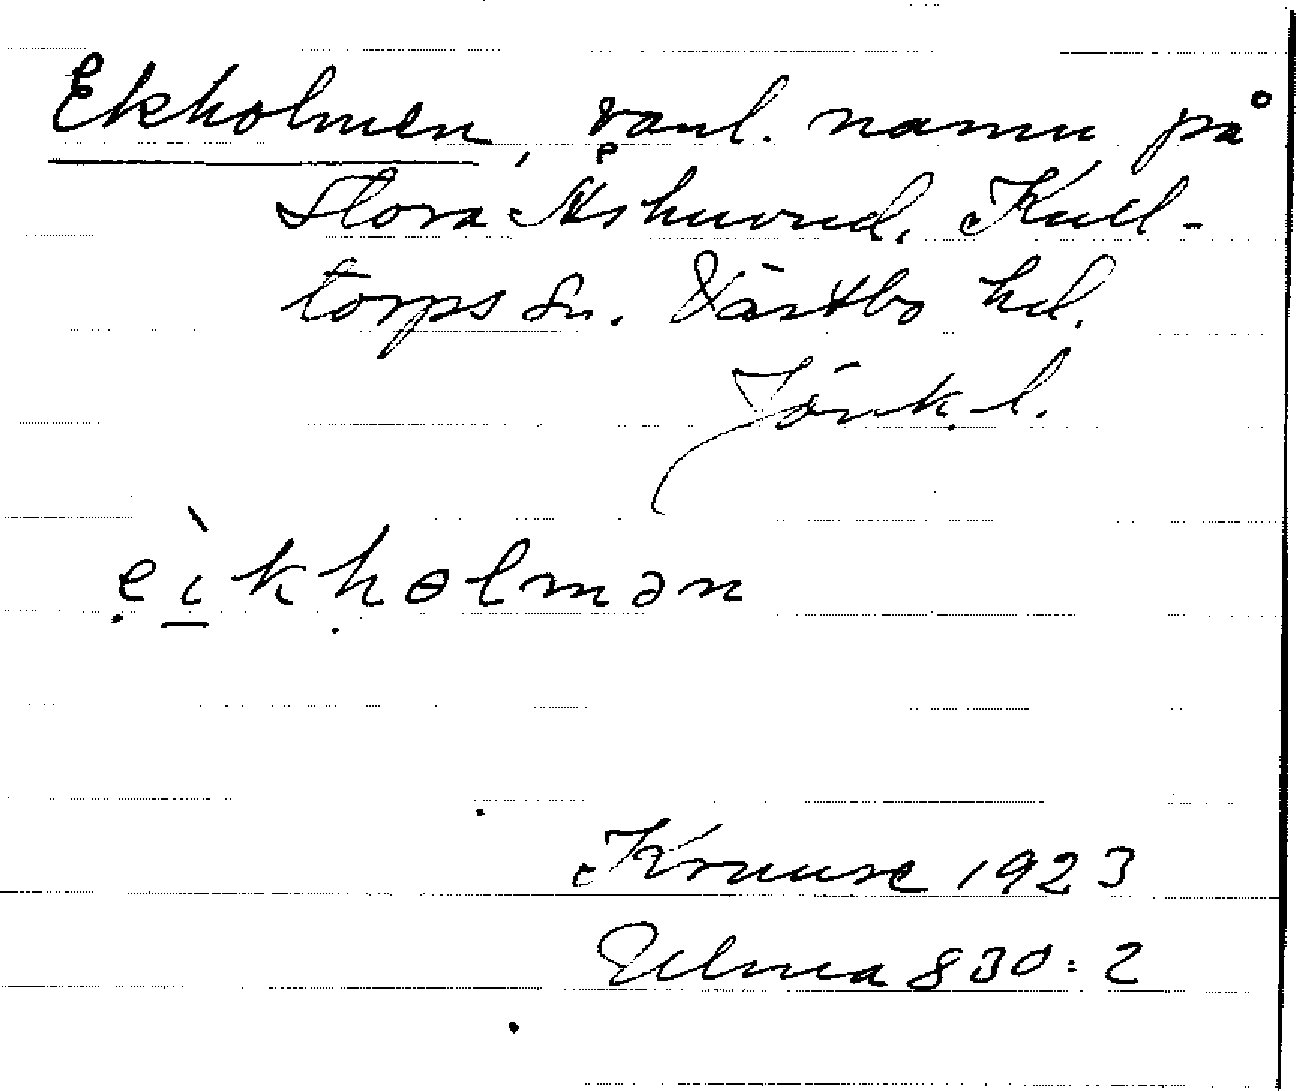 Ekholmen, vanl. namn på
Stora Åshuvud, Kull-
torps sn. Västbo hd.
Jönk. l.
ẹì̠kḥolmən
Kruuse 1923
Ulma 830:2